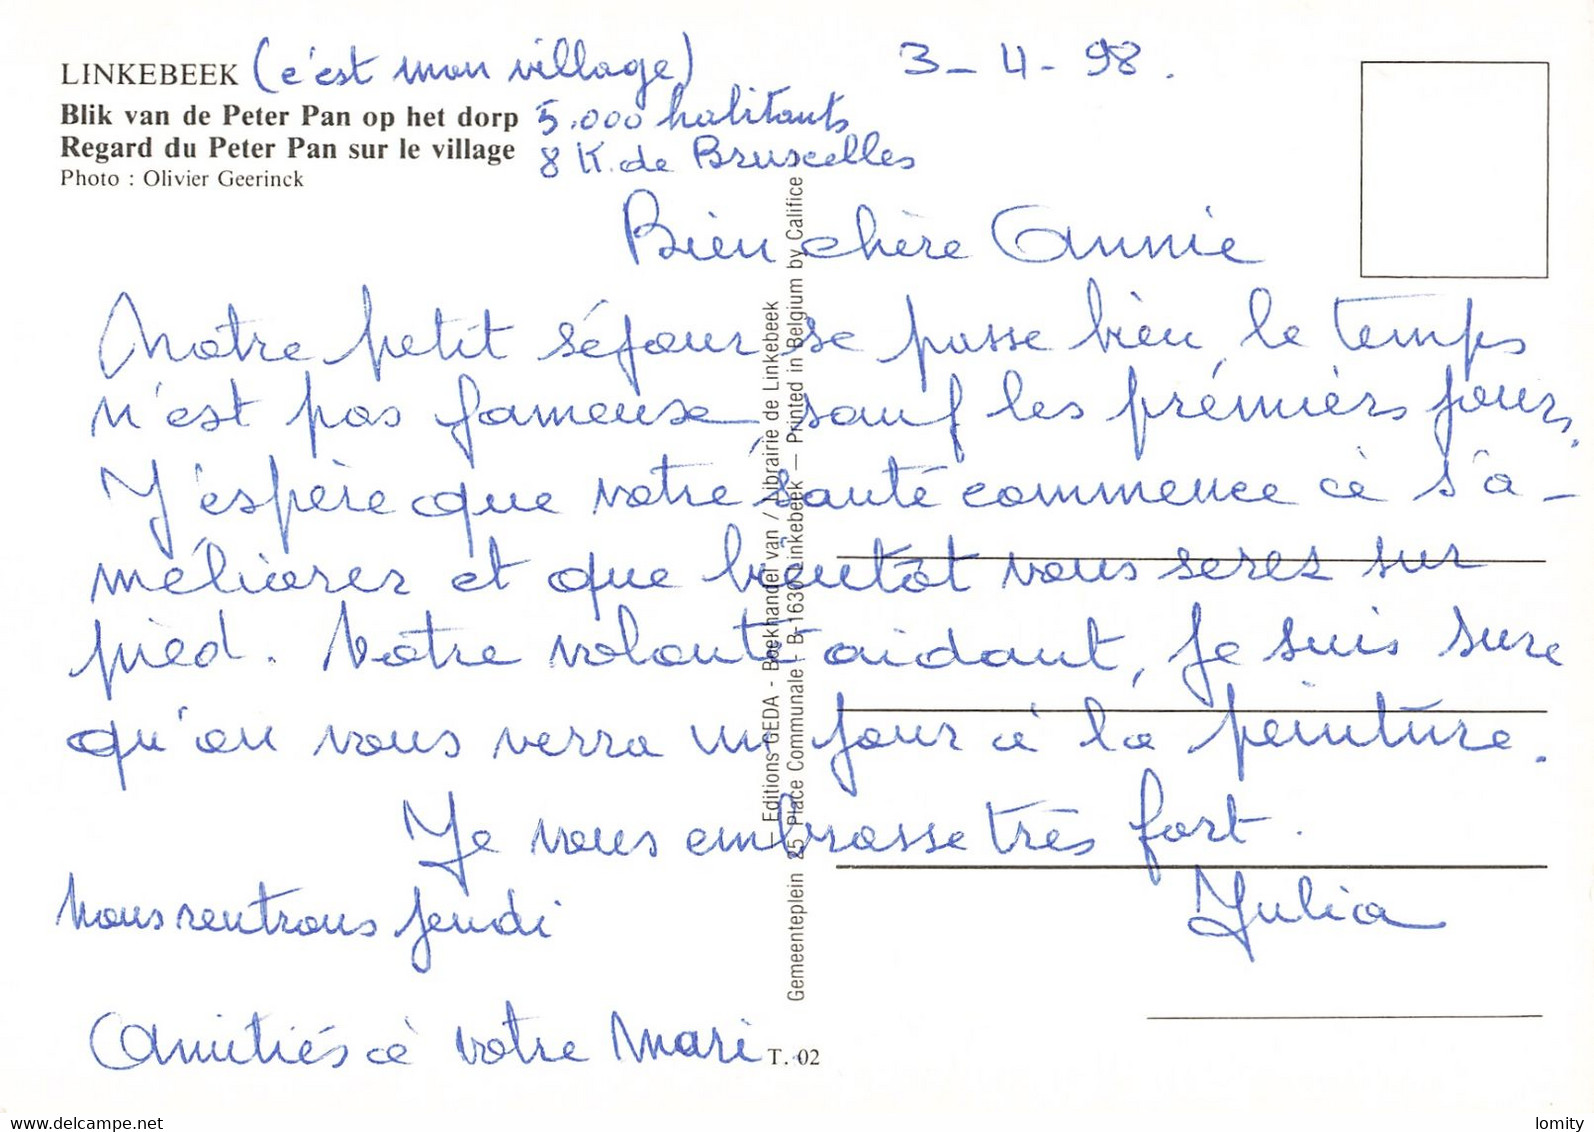 LINKEBEEK (c'est mon village) 3-4-98.
Blik van de Peter Pan op het dorp 5.000 habitants
Regard du Peter Pan sur le village 8 K. de Bruscelles
Photo : Olivier Geerinck
Bien chère Annie
Notre petit séjour se passe bien, le temps
n'est pas fameuse, sauf les prémièrs jours.
J'espère que votre santé commence à s'a-
méliorer et que bientôt vous serez sur
pied. Votre volonté aidant, je suis sure
qu'on vous verra un jour à la peinture.
Je vous embrasse très fort.
Nous rentrons jeudi
Julia
Amitiés à votre Mari
T. 02
— Editions GEDA - Boekhandel van / Librairie de Linkebeek
Gemeenteplein 25 Place Communale - B-1630 Linkebeek — Printed in Belgium by Califice
delcampe.net
lomity